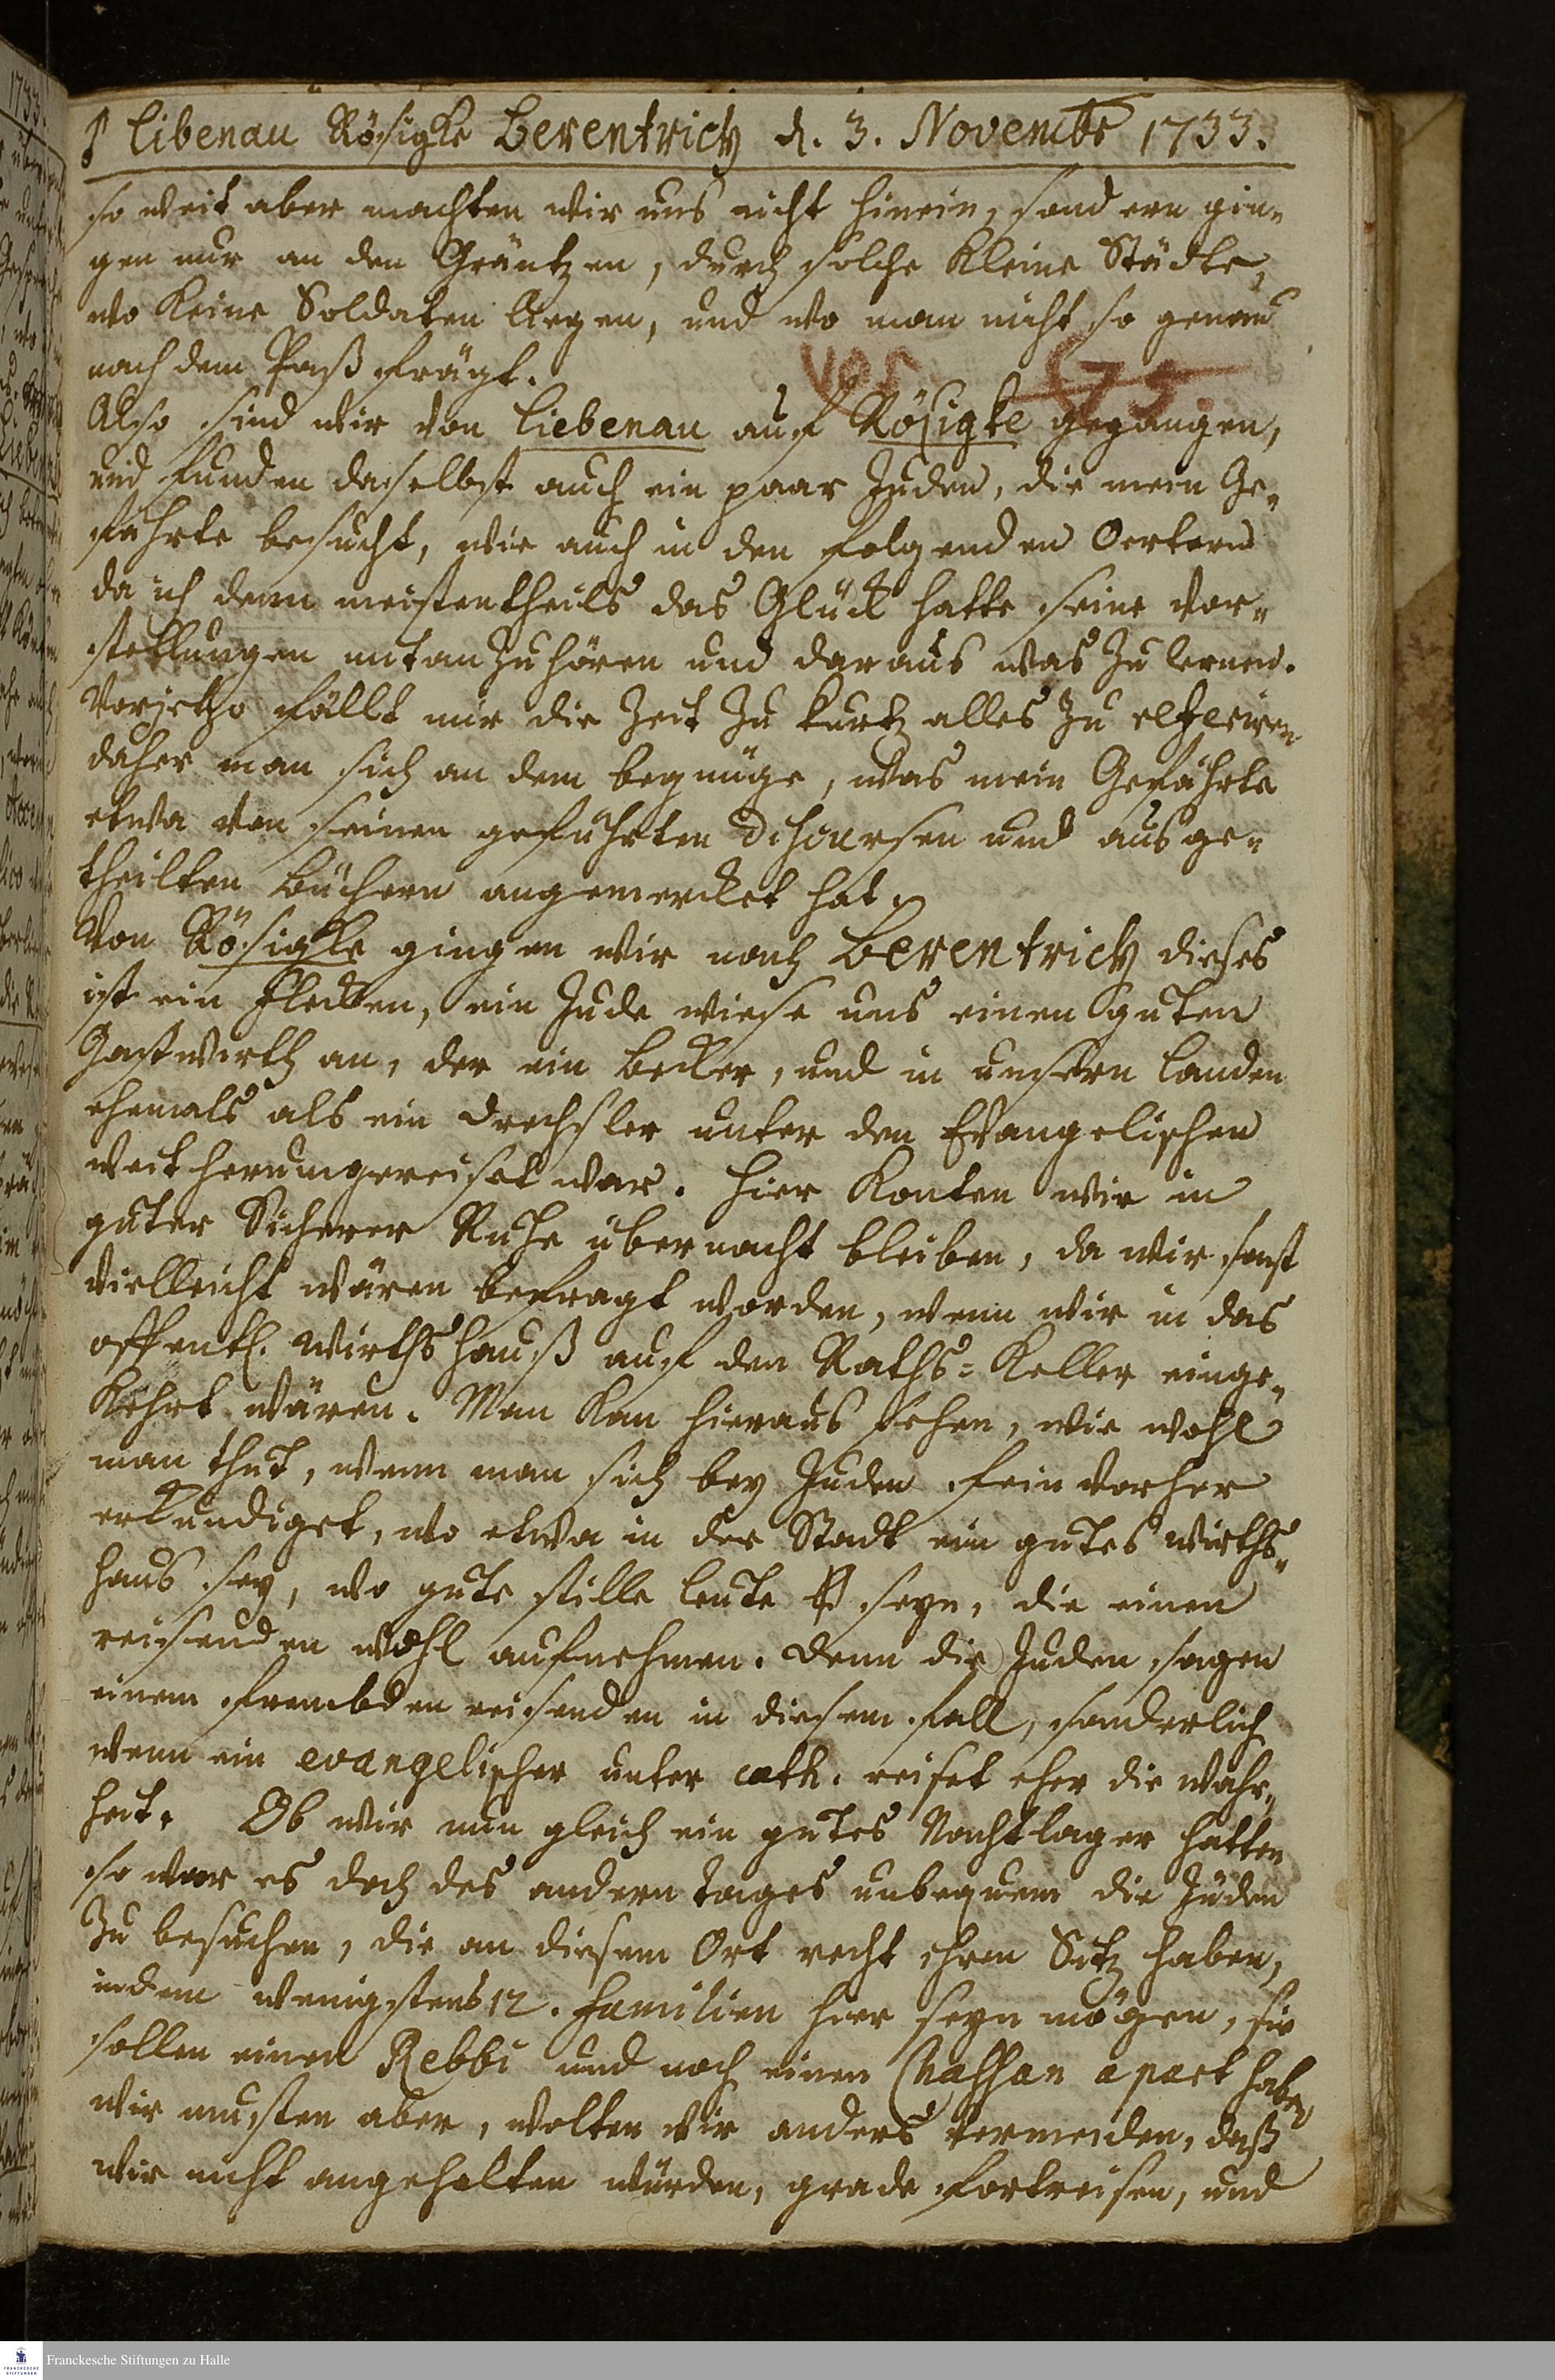 ♂ Libenau Rösigke Berentrich d. 3. Novembr 1733.
so weit aber machten wir uns nicht hinein, sondern gin-
gen nur an den Gräntzen, durch solche kleine Städte,
wo keine Soldaten liegen, und wo man nicht so genau
nach dem Paß frägt.
Also sind wir von Liebenau auf Rösigke gegangen,
und funden daselbst auch ein paar Juden, die mein Ge-
fährte besucht, wie auch in den folgenden Oertern
da ich denn meistentheils das Glück hatte seine Vor-
stellungen mit anzuhören und daraus was zu lernen.
Vorjetzo fällt mir die Zeit zu kurtz alles zu
daher man sich an dem begnüge, was mein Gefährte
etwa von seinen geführten Discursen und ausge-
theilten Büchern angemercket hat.
Von Rösigke gingen wir nach Berentrich dieses
ist ein Flecken, ein Jude wiese uns einen guten
Gastwirth an, der ein Becker, und in unsern Landen
ehemals als ein Drechsler unter den Evangelischen
weit herumgereiset war. Hier konten wir in
guter Sicherer Ruhe übernacht bleiben, da wir sonst
vielleicht wären befragt worden, wenn wir in das
offentl. Wirthshauß auf den Raths-Keller einge-
kehrt wären. Man kan hieraus sehen, wie wohl
man thut, wenn man sich bey Juden fein vorher
erkundiget, wo etwa in der Stadt ein gutes Wirths-
haus sey, wo gute stille Leute seyn, die einen
reisenden wohl aufnehmen. Denn die Juden sagen
einem frembden reisenden in diesem fall, sonderlich
wenn ein evangelischer unter cath. reiset eher die Wahr-
heit. Ob wir nun gleich ein gutes Nachtlager hatten
so war es doch des andern tages unbequem die Juden
zu besuchen, die an diesem Ort recht ihren Sitz haben,
indem wenigstens 12. Familien hier seyn mögen, sie
sollen einen Rebbi und noch einen Chassan apart haben
wir musten aber, wolten wir anders vermeiden, daß
wir nicht angehalten würden, grade fortreisen, und
Franckesche Stiftungen zu Halle